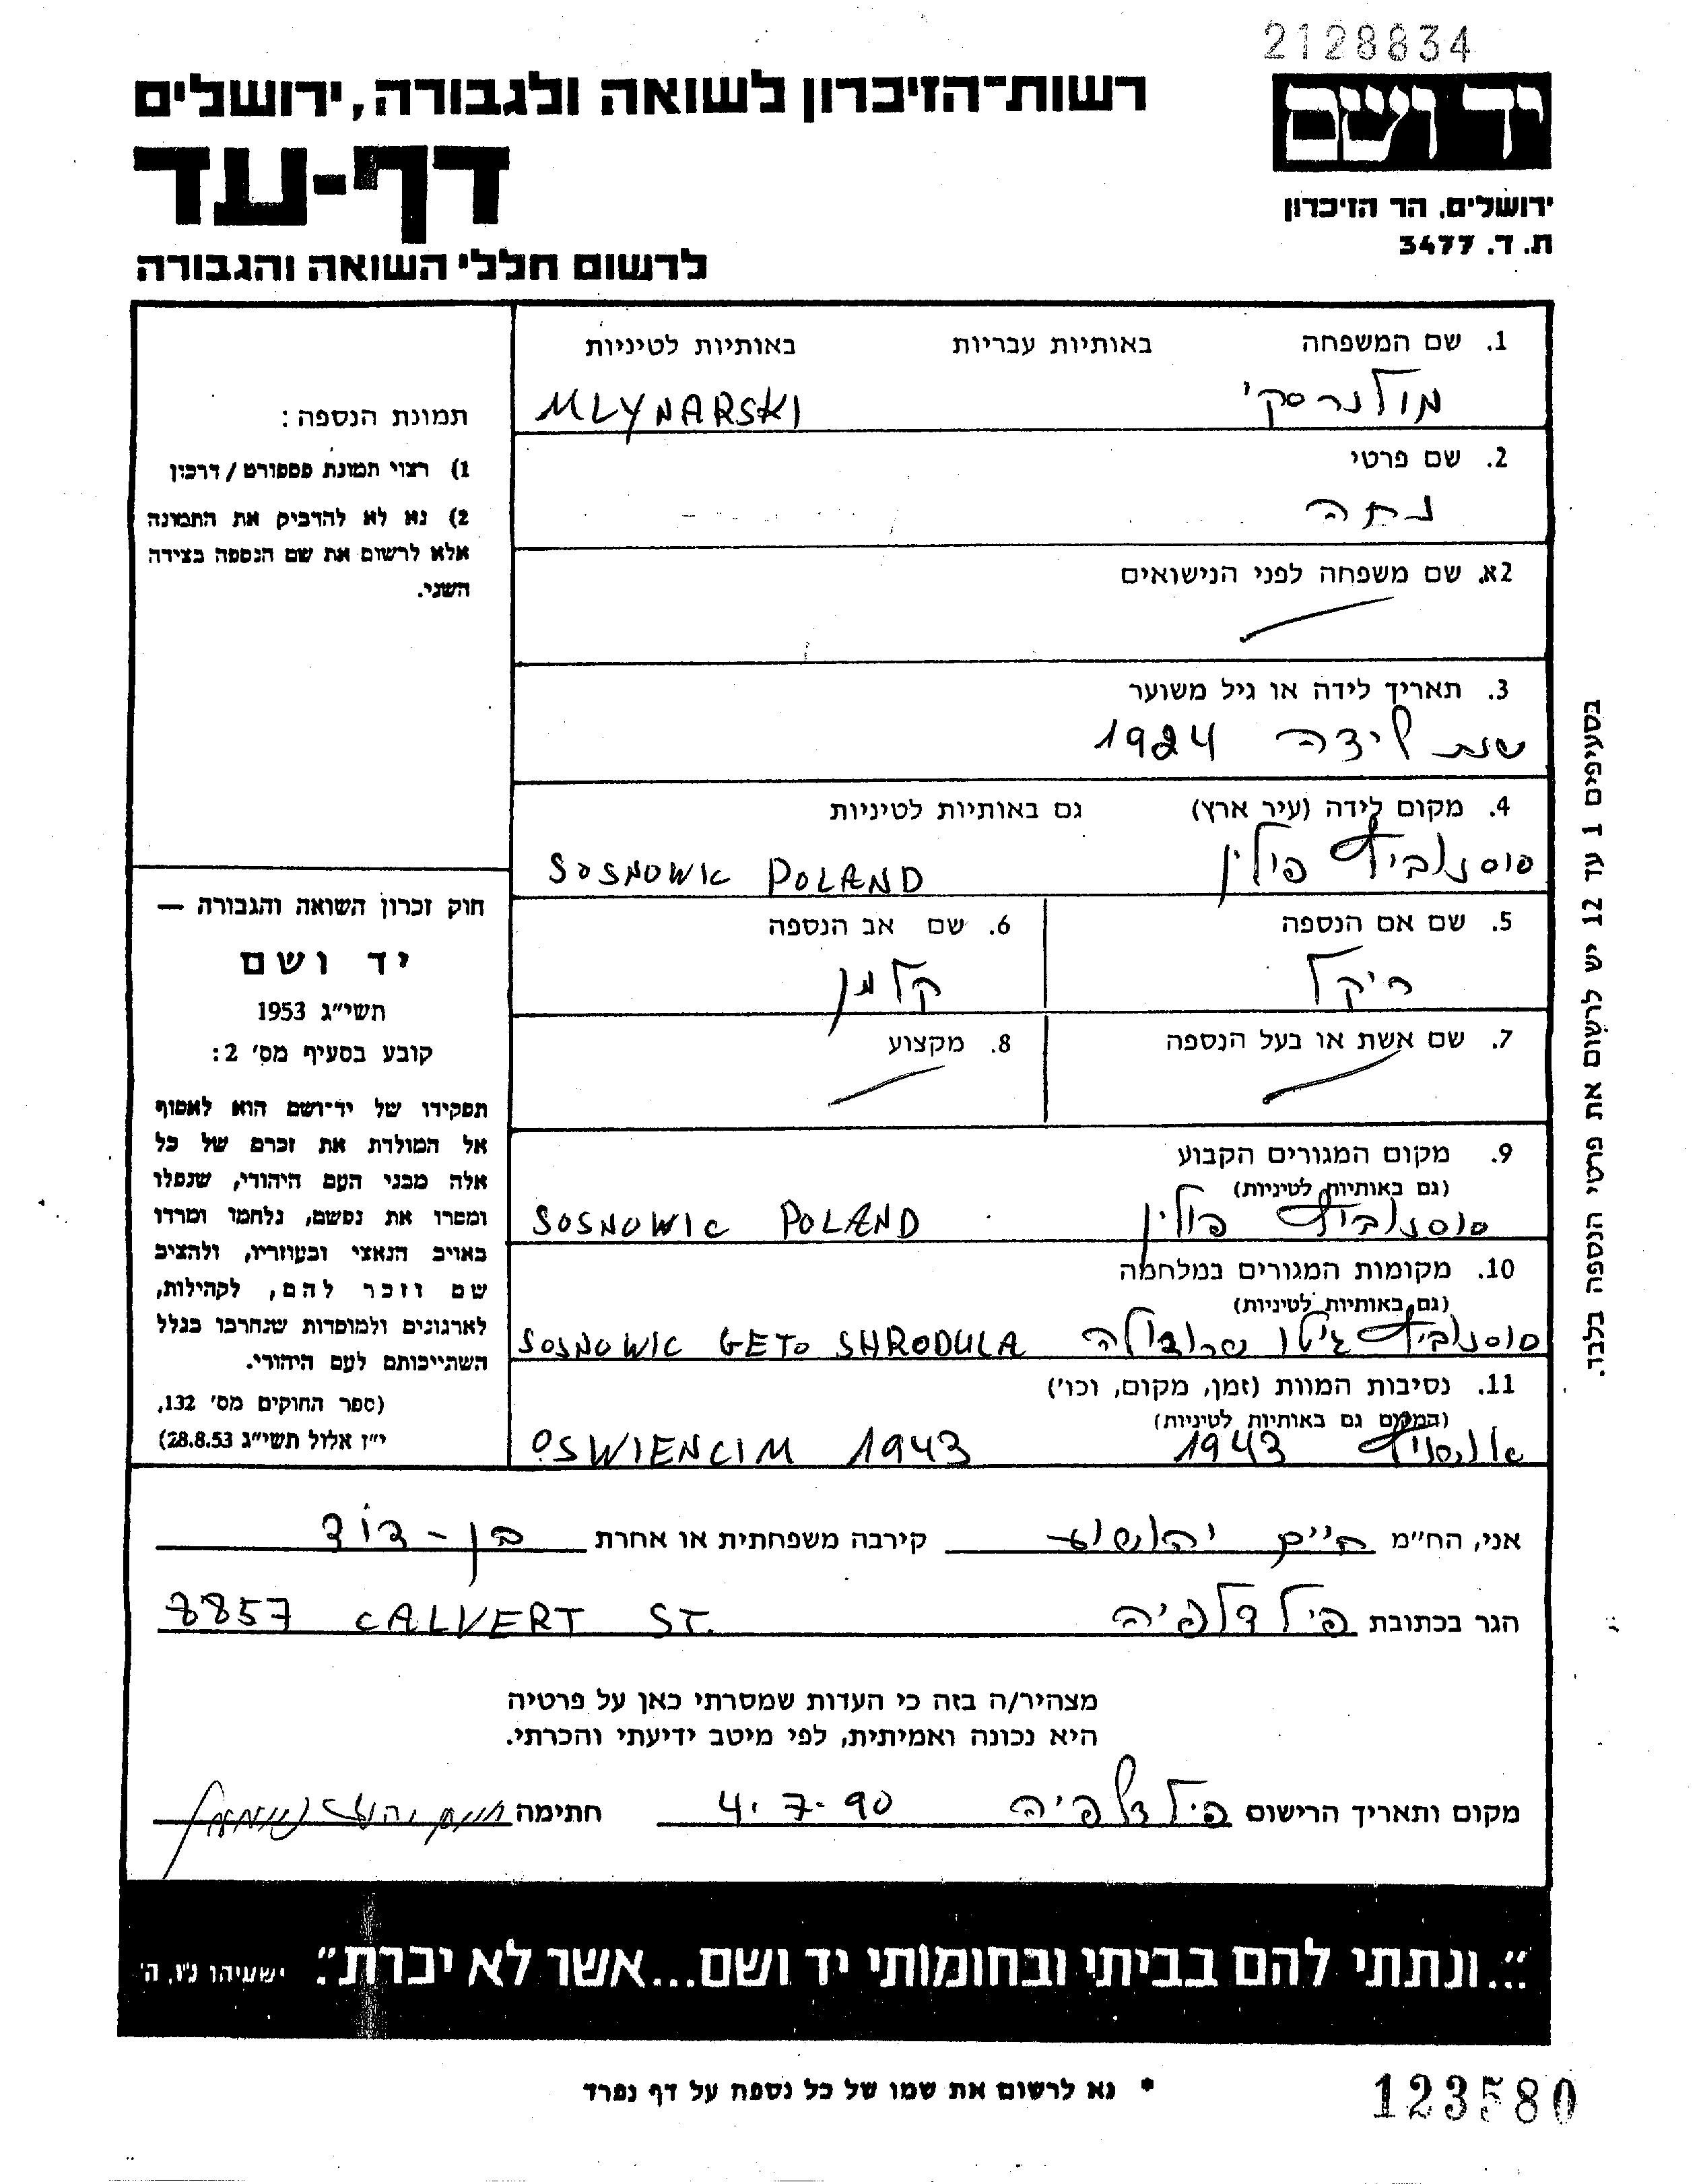 2128834
יד ושם
רשות־הזיכרון לשואה ולגבורה, ירושלים
דף-עד
לרשום חללי השואה והגבורה
ירושלים, הר הזיכרון
ת. ד. 3477
1. שם המשפחה באותיות עבריות באותיות לטיניות
מולנרסקי MLYNARSKI
2. שם פרטי
נחה
2א. שם משפחה לפני הנישואים
3. תאריך לידה או גיל משוער
שנת לידה 1924
4. מקום לידה (עיר ארץ) גם באותיות לטיניות
סוסנוביץ פולין SOSNOWIC POLAND
5. שם אם הנספה
ריקל
6. שם אב הנספה
קלמן
7. שם אשת או בעל הנספה
8. מקצוע
9. מקום המגורים הקבוע
(גם באותיות לטיניות)
סוסנוביץ פולין SOSNOWIC POLAND
10. מקומות המגורים במלחמה
(גם באותיות לטיניות)
סוסנוביץ גיטו שרודולה SOSNOWIC GETO SHRODULA
11. נסיבות המוות (זמן, מקום, וכו')
(המקום גם באותיות לטיניות)
1943 OSWIENCIM 1943
תמונת הנספה:
1) רצוי תמונת פספורט / דרכון
2) נא לא להדביק את התמונה
אלא לרשום את שם הנספה בצידה
השני.
חוק זכרון השואה והגבורה —
יד ושם
תשי״ג 1953
קובע בסעיף מס' 2:
תפקידו של יד־ושם הוא לאסוף
אל המולדת את זכרם של כל
אלה מבני העם היהודי, שנפלו
ומסרו את נפשם, נלחמו ומרדו
באויב הנאצי ובעוזריו, ולהציב
שם וזכר להם, לקהילות,
לארגונים ולמוסדות שנחרבו בגלל
השתייכותם לעם היהודי.
(ספר החוקים מס' 132,
י״ז אלול תשי״ג 28.8.53)
בסעיפים 1 עד 12 יש לרשום את פרטי הנספה בלבד.
אני, הח״מ חיים יהושוע קירבה משפחתית או אחרת בן-דוד
הגר בכתובת פילדלפיה 8857 CALVERT ST.
מצהיר/ה בזה כי העדות שמסרתי כאן על פרטיה
היא נכונה ואמיתית, לפי מיטב ידיעתי והכרתי.
מקום ותאריך הרישום פילדלפיה 4.7.90 חתימה
״...ונתתי להם בביתי ובחומותי יד ושם...אשר לא יכרת״. ישעיהו נ״ו, ה'
* נא לרשום את שמו של כל נספה על דף נפרד
123580